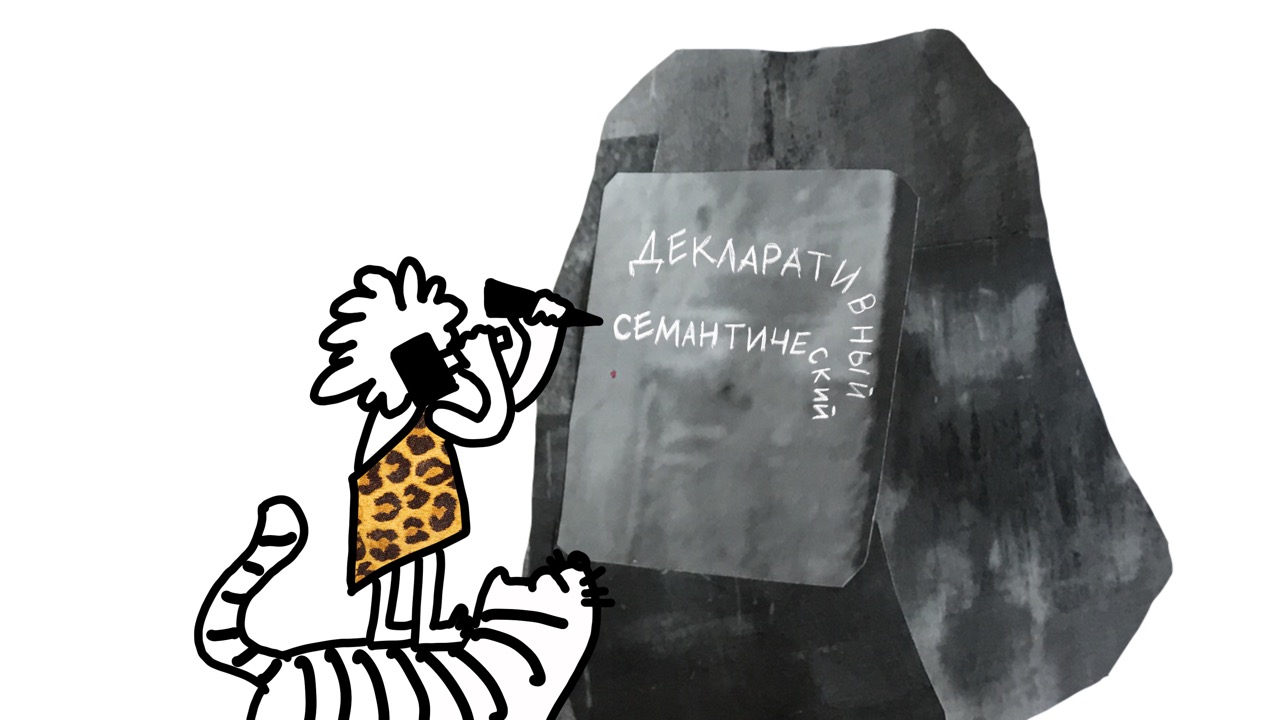 ДЕКЛАРАТИВНЫЙ
СЕМАНТИЧЕСКИЙ